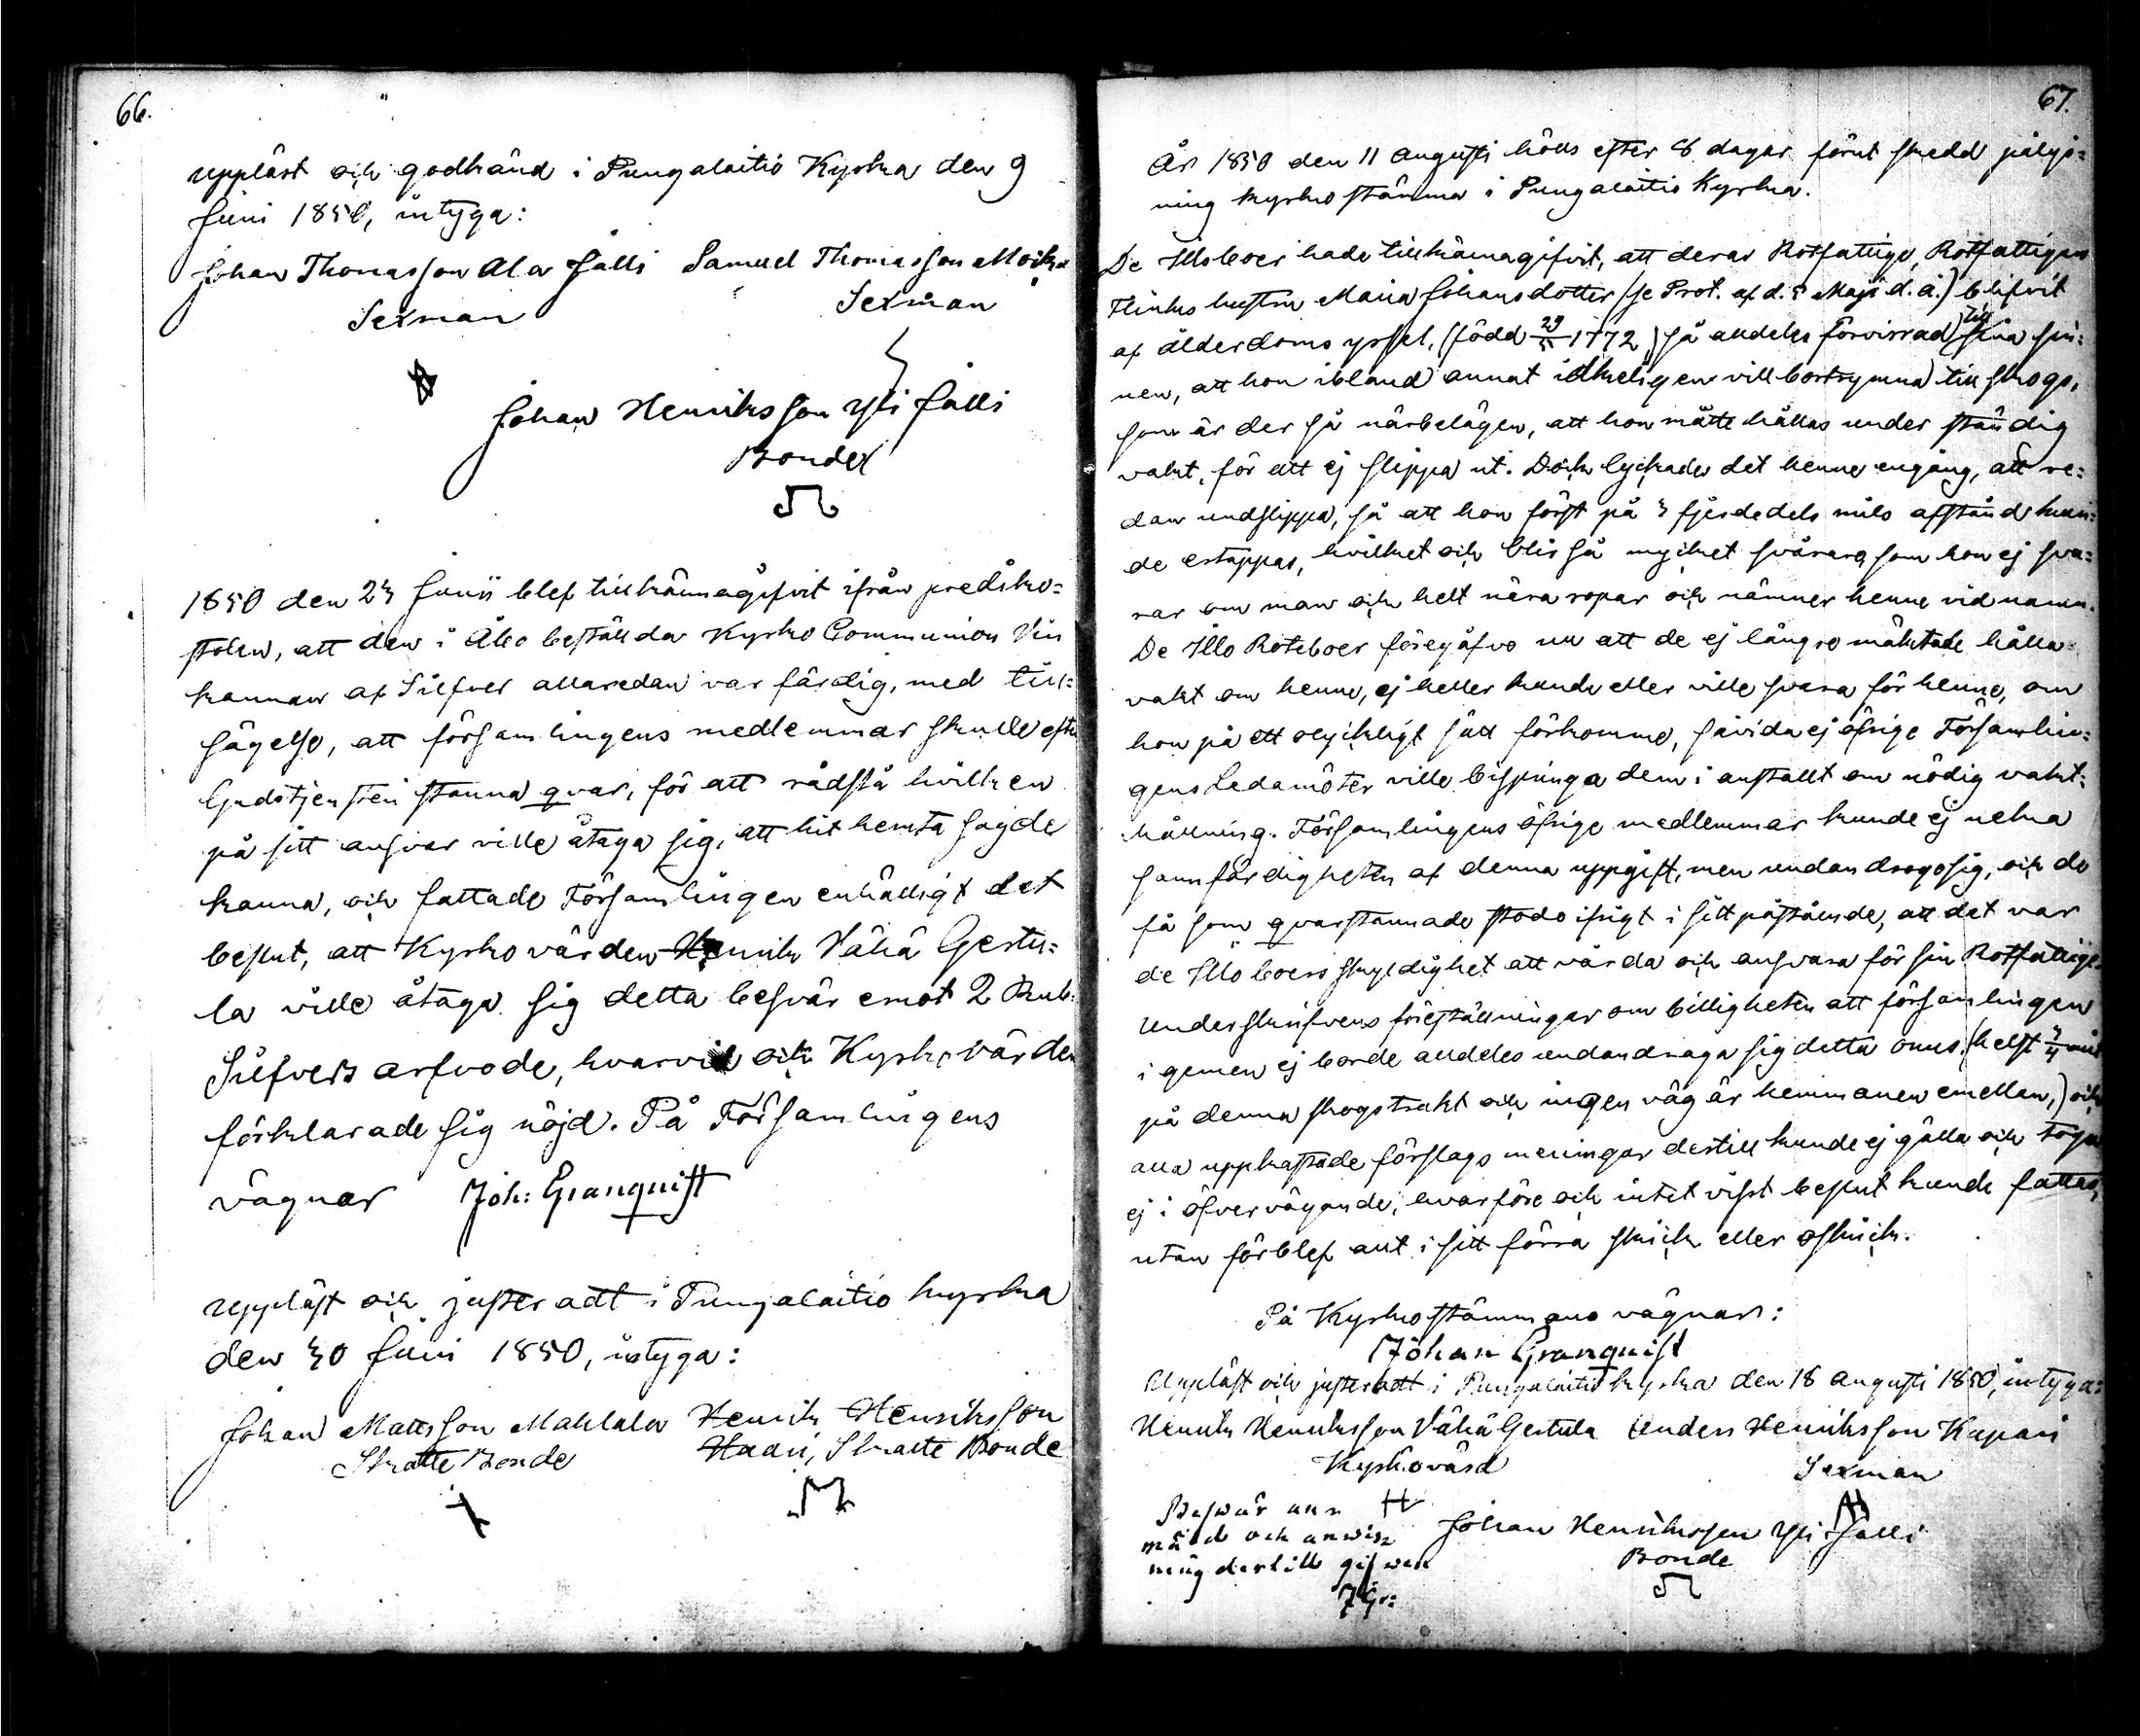 66.
uppläst och godkänd i Pungalaitio Kyrka den 9
Juni 1850, intyga:
Johan Thomasson Ala Jälli Samuel Thomasson Moik
Sexman Sexman
Johan Henriksson Yli Jälli
Bonde
1850 den 23 Junii blef tillkännagifvit ifrån prediko=
stolen, att den i Åbo beställda Kyrko Communion Vin
kannan af Silfver allaredan var färdig, med till=
sägelse, att församlingens medlemmar skulle efter
Gudstjensten stanna qvar, för att rådslå hvilken
på sitt ansvar ville åtaga sig, att hit hemta sagde
kanna, och fattade Församlingen enhälligt det
beslut, att Kyrkovärden Henrik Vähä Gertu=
la ville åtaga sig detta besvär emot 2 Rub.
Silfvers arfvode, hvarvid och Kyrkovärden
förklarade sig nöjd. På Församlingens
vägnar Joh: Granquist
Uppläst och justeradt i Pungalaitio kyrka
den 30 Juni 1850, intyga:
Johan Mattsson Mahlala Henrik Henriksson
Skatte Bonde Haavi, Skatte Bonde
67.
År 1850 den 11 Augusti hölls efter 8 dagar förut skedd pålys=
ning kyrkostämma i Pungalaitio Kyrka.
De Illoboer hade tillkännagifvit, att deras Rotfattige, Rotfattigen
Flinks hustru Maria Johansdotter (se Prot. af d. 5 Maji d. å.) blifvit
af ålderdoms yssel, (född 29/5 1772) så alldeles förvirrad till sina sin=
nen, att hon ibland annat idkeligen vill bortrymma till skogs,
som är der så närbelägen, att hon måtte hållas under ständig
vakt, för att ej slippa ut. Dock lyckades det henne engång, att re=
dan undslippa, så att hon först på 3 fjerdedels mils afstånd kun=
de ertappas, hvilket och blir så mycket svårare som hon ej sva=
rar om man och helt nära ropar och nämner henne vid namn.
De Illo Roteboer föregåfvo nu att de ej längre mäktade hålla
vakt om henne, ej heller kunde eller ville svara för henne, om
hon på ett olyckligt sätt förkomme, såvida ej öfrige Församlin=
gens Ledamöter ville bispringa dem i anstallt om nödig vakt=
hållning. Församlingens öfrige medlemmar kunde ej neka
sannfärdigheten af denna uppgift, men undandrogo sig, och de
få som qvarstannade stodo ifrigt i sitt påstående, att det var
de Illoboers skyldighet att vårda och ansvara för sin Rotfattige.
Underskrifvens föreställningar om billigheten att församlingen
i gemen ej borde alldeles undandraga sig detta onus, (helst 3/4 mil
på denna skogstrakt och ingen väg är hemmanen emellan,) och
alla uppkastade förslags meningar dertill kunde ej gälla och togos
ej i öfvervägande; hvarföre och intet visst beslut kunde fattas,
utan förblef allt i sitt förra skick eller oskick.
På Kyrkostämmans vägnar:
Johan Granquist
Uppläst och justeradt i Pungalaitio kyrka den 18 Augusti 1850, intyga:
Henrik Henriksson Vähä Gertula Anders Henriksson Kupari
Kyrkovärd Sexman
Beswär an
mäld och anwis
ning dertill gifwen
J Gr:
Johan Henriksson Yli Jälli
Bonde